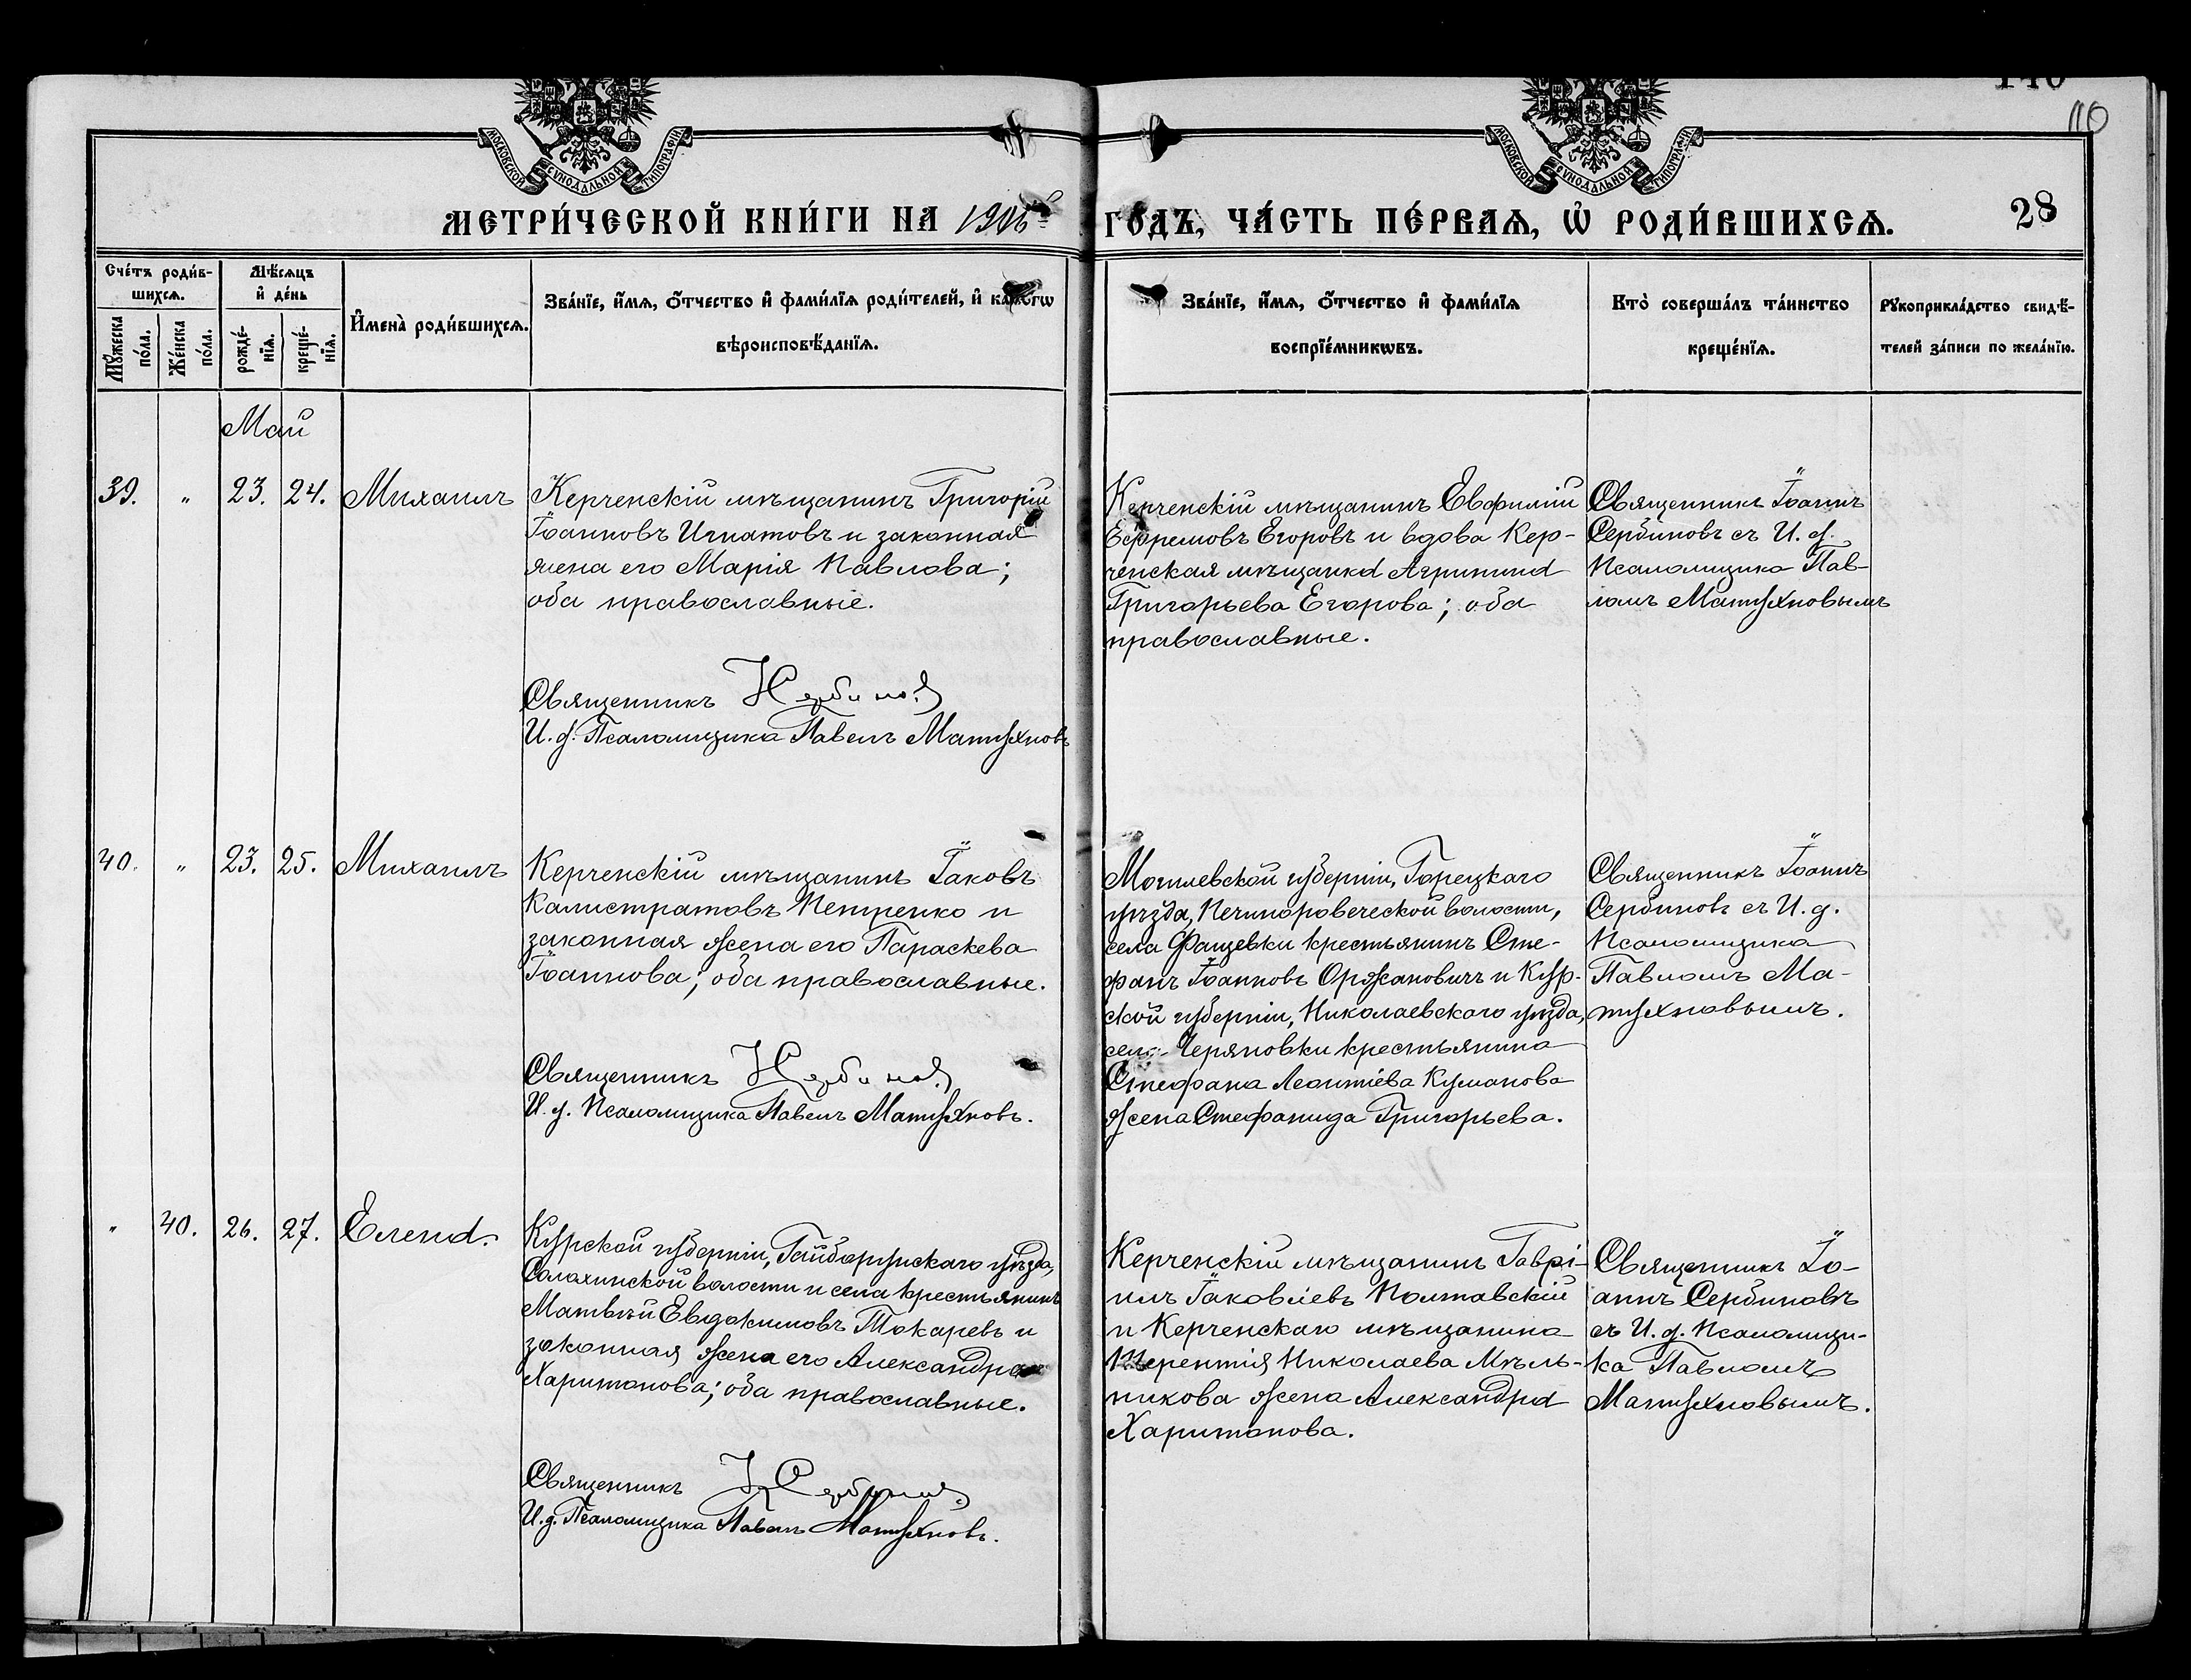 МОСКОВСКОЙ СѴНОДАЛЬНОЙ ТИПОГРАФІИ
МОСКОВСКОЙ СѴНОДАЛЬНОЙ ТИПОГРАФІИ
110
МЕТРИ́ЧЕСКОЙ КНИ́ГИ НА
ГО́ДЪ, ЧА́СТЬ ПЕ́РВАѦ, Ѡ҆ РОДИ́ВШИХСѦ.
28
Сче́тъ роди́в-
шихсѧ.
Мꙋ́жеска
по́ла.
Же́нска
по́ла.
Мѣ́сѧцъ
и҆ де́нь
рожде́-
нїѧ.
креще́-
нїѧ.
И҆мена̀ роди́вшихсѧ.
Зва́нїе, и҆́мѧ, ѻ҆́тчество и҆ фами́лїѧ роди́телей, и҆ како́гѡ
вѣроисповѣ́данїѧ.
Зва́нїе, и҆́мѧ, ѻ҆́тчество и҆ фами́лїѧ
воспрїе́мникѡвъ.
Кто̀ соверша́лъ та́инство
креще́нїѧ.
Рꙋкоприкла́дство свидѣ́-
телей за́писи по жела́нїю.
Май
39. " 23. 24. Михаилъ
Керченскій мѣщанинъ Григорій
Іоанновъ Игнатовъ и законная
жена его Марія Павлова;
оба православные.
Священникъ И Сербиновъ
И. д. Псаломщика Павелъ Матухновъ
Керченскій мѣщанинъ Евфимій
Ефремовъ Егоровъ и вдова Кер-
ченская мѣщанка Агрипина
Григорьева Егорова; оба
православные.
Священникъ Іоаннъ
Сербиновъ съ И. д.
Псаломщика Пав-
ломъ Матухновымъ
40. " 23. 25. Михаилъ
Керченскій мѣщанинъ Іаковъ
Калистратовъ Петренко и
законная жена его Параскева
Іоаннова; оба православные.
Священникъ И Сербиновъ
И. д. Псаломщика Павелъ Матухновъ.
Могилевской губерніи, Горецкаго
уѣзда, волости,
села Фащевки крестьянинъ Сте-
фанъ Іоанновъ Оржановичъ и Кур-
ской губерніи, Николаевскаго уѣзда,
села Черяновки крестьянина
Стефана Леонтіева Куманова
жена Стефанида Григорьева.
Священникъ Іоаннъ
Сербиновъ съ И. д.
Псаломщика
Павломъ Ма-
тухновымъ.
" 40. 26. 27. Елена.
Курской губерніи, уѣзда,
Солохинской волости и села крестьянинъ
Матвѣй Евдокимовъ Токаревъ и
законная жена его Александра
Харитонова; оба православные.
Священникъ И Сербиновъ
И. д. Псаломщика Павелъ Матухновъ.
Керченскій мѣщанинъ Гаврі-
илъ Іаковлевъ Полтавскій
и Керченскаго мѣщанина
Терентія Николаева Мѣль-
никова жена Александра
Харитонова.
Священникъ Іо-
аннъ Сербиновъ
съ И. д. Псаломщи-
ка Павломъ
Матухновымъ.